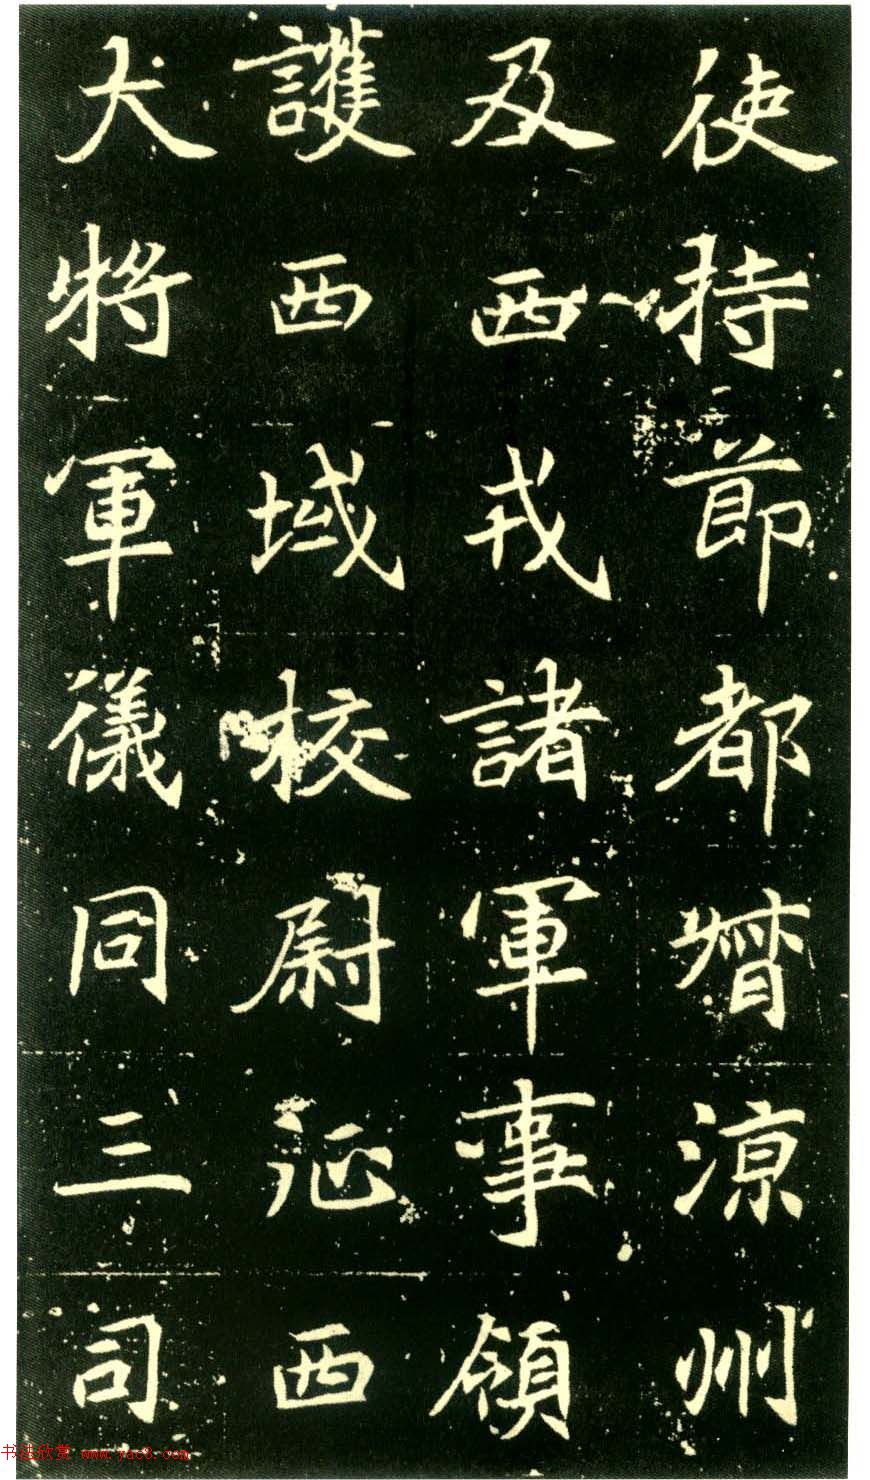 使持節都督涼州
及西戎諸軍事領
護西域校尉征西
大將軍儀同三司
书法欣赏 www.yac8.com